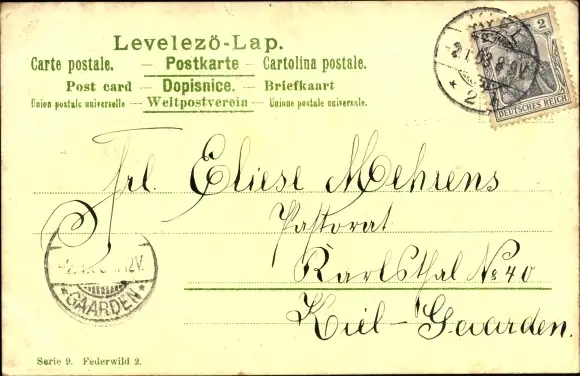 Levelező-Lap.
Carte postale. — Postkarte — Cartolina postale.
Post card — Dopisnice. — Briefkaart
Union postale universelle — Weltpostverein — Unione postale universale.
KIEL
2.1.03. 8-9V.
* 2
2
DEUTSCHES REICH
Frl. Eliese Mehrens
Pastorat
Karlsthal No 40
Kiel-Gaarden.
12V.
* GAARDEN *
Serie 9. Federwild 2.